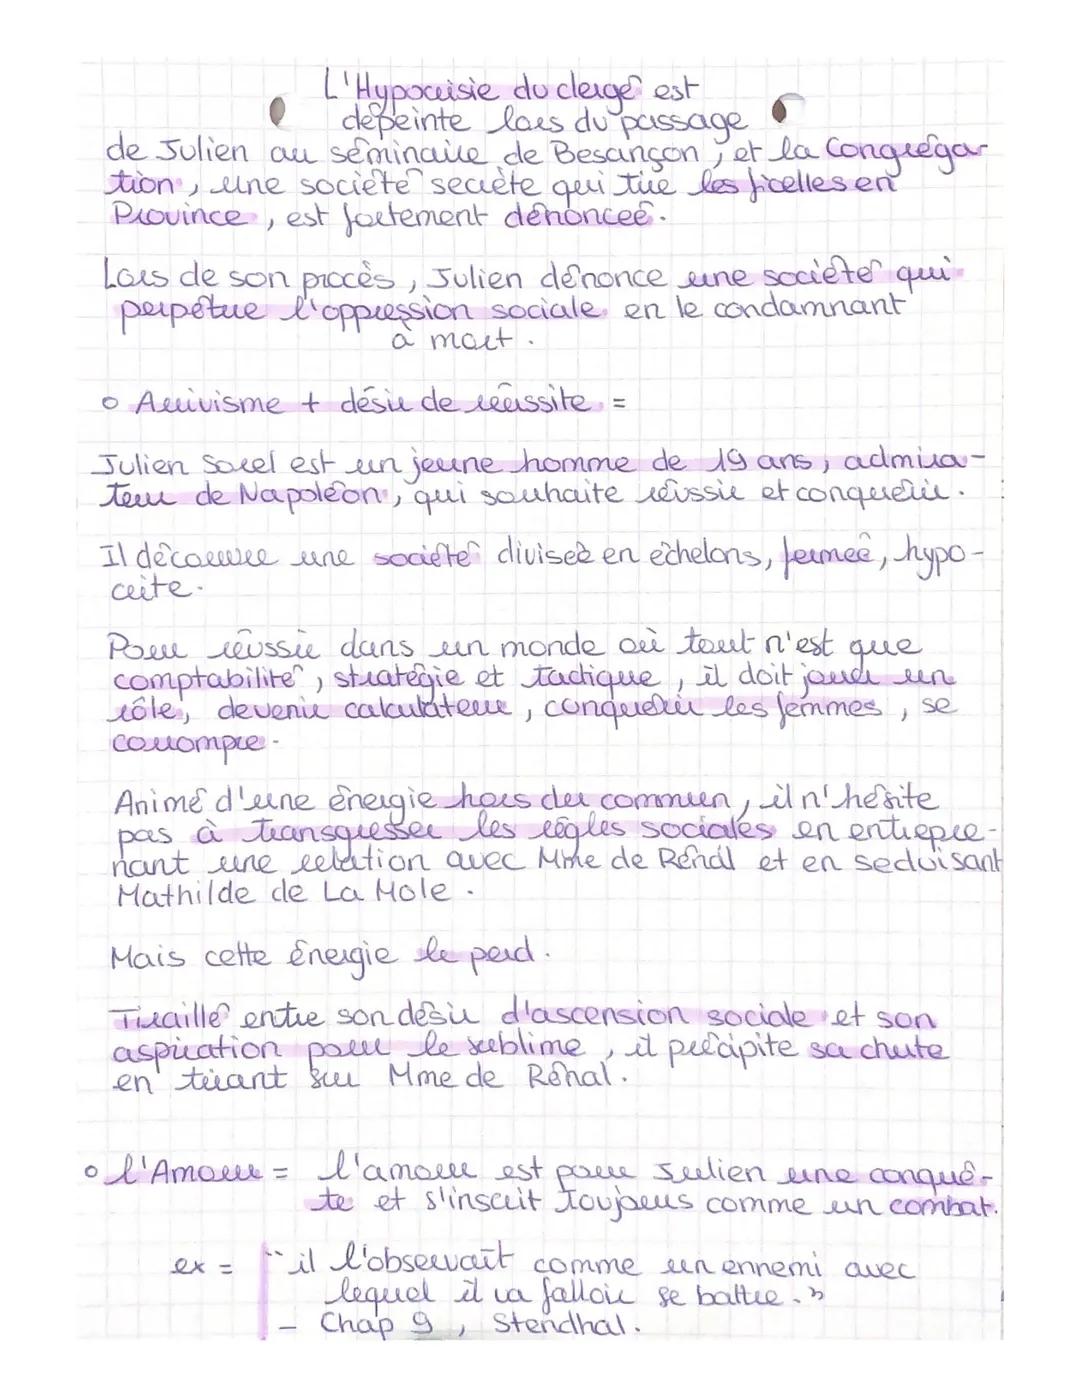 L'Hypocrisie du clergé est
dépeinte lors du passage
de Julien au séminaire de Besançon, et la Congréga-
tion, une société secrète qui tire les ficelles en
Province, est fortement dénoncée.
Lors de son procès, Julien dénonce une société qui
perpétue l'oppression sociale en le condamnant
à mort.
o Arrivisme + désir de réussite =
Julien Sorel est un jeune homme de 19 ans, admira-
teur de Napoléon, qui souhaite réussir et conquérir.
Il découvre une société divisée en échelons, fermée, hypo-
crite.
Pour réussir dans un monde où tout n'est que
comptabilité, stratégie et tactique, il doit jouer un
rôle, devenir calculateur, conquérir les femmes, se
corrompre.
Animé d'une énergie hors du commun, il n'hésite
pas à transgresser les règles sociales en entrepre-
nant une relation avec Mme de Rênal et en séduisant
Mathilde de La Mole.
Mais cette énergie le perd.
Tiraillé entre son désir d'ascension sociale et son
aspiration pour le sublime, il précipite sa chute
en tirant sur Mme de Rênal.
o l'Amour = l'amour est pour Julien une conquê-
te et s'inscrit toujours comme un combat.
ex = "il l'observait comme un ennemi avec
lequel il va falloir se battre."
- Chap 9, Stendhal.